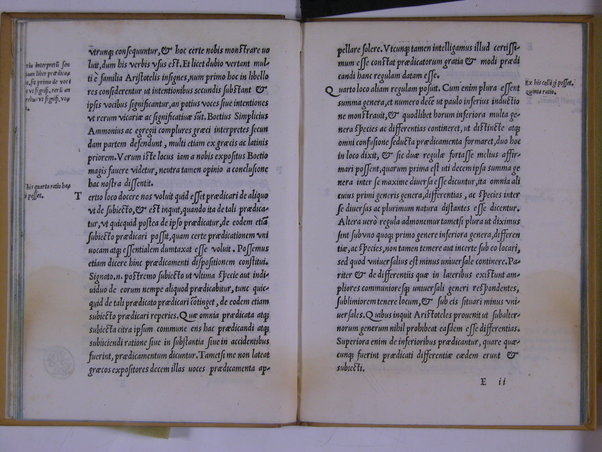 vtrunq; consequuntur, & hoc certe nobis monstrare uo
luit, dum his verbis vsus est. Et licet dubio vertant mul
ti è familia Aristotelis insignes, num primo hoc in libello
res considerentur ut intentionibus secundis substant &
ipsis vocibus significantur, an potius voces siue intentiones
vt rerum vicariæ ac significatiuæ sunt. Boetius Simplicius
Ammonius ac egregij complures græci interpretes secun
dam partem defendunt, multi etiam ex græcis ac latinis
priorem. Verum iste locus iam a nobis expositus Boetio
magis fauere videtur, neutra tamen opinio a conclusione
hac nostra dissentit.
his quarta ratio
T ertio loco docere nos voluit quid esset prædicari de aliquo
vt de subiecto, & est inquit, quando ita de tali prædica
tur, vt quicquid postea de ipso prædicatur, de eodem etiā
subiecto prædicari possit, quam certe prædicationem vni
uocam atq; essentialem duntaxat esse voluit. Possemus
etiam dicere hinc prædicamenti dispositionem constitui.
Signato. n. postremo subiecto ut vltima specie aut indi
uiduo de eorum nempe aliquod prædicabitur, tunc quic-
quid de tali prædicato prædicari cōtinget, de eodem etiam
subiecto prædicari reperies. Quæ omnia prædicata atq;
subiecta citra ipsum commune ens hac prædicandi atq;
subijciendi ratione siue in substantia siue in accidentibus
fuerint, prædicamentum dicuntur. Tametsi me non lateat
græcos expositores decem illas uoces prædicamenta ap-
pellare solere. Vtcunq; tamen intelligamus illud certissi-
mum esse constat prædicatorum gratia & modi prædi
candi hanc regulam datam esse.
quinta ratio.
Quarto loco aliam regulam posuit. Cum enim plura essent
summa genera, et numero decē ut paulo inferius inductio
ne monstrauit, & quodlibet horum inferiora multa ge-
nera species ac differentias contineret, ut distincte atq;
omni confusione seducta prædicamenta formaret, duo hoc
in loco dixit, & sic duæ regulæ fortasse melius affir-
mari possent, quarum prima est uti decem ipsa summa ge
nera inter se maxime diuersa esse dicuntur, ita omnia ali
cuius primi generis genera, differentias, ac species inter
se diuersas ac plurimum natura distantes esse dicuntur.
Altera uerò regula admonemur tametsi plura ut diximus
sent sub vno quoq; primo genere inferiora genera, differen
tiæ, ac species, non tamen temere aut incerte sub eo locari,
sed quod vniuersalius est minus vniuersale continere. Pa-
riter & de differentijs quæ in lateribus existunt am
pliores communioresq; uniuersali generi respondentes,
sublimiorem tenere locum, & sub eis situari minus vni-
uersales. Quibus inquit Aristoteles prouenit ut subalter-
norum generum nihil prohibeat easdem esse differentias.
Superiora enim de inferioribus prædicantur, quare quæ-
cunq; fuerint prædicati differentiæ eædem erunt &
subiecti.
E ii